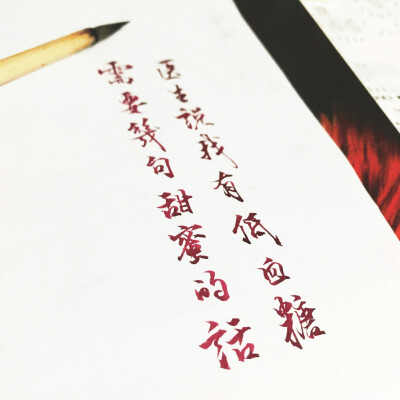 医生说我有低血糖
需要幾句甜蜜的话